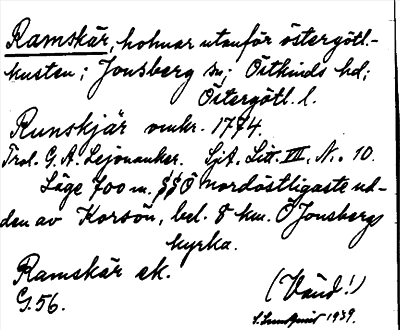 Ramskär, holmar utanför östergötl.-
kusten; Jonsberg sn; Östkinds hd;
Östergötl. l.
Runskjär omkr. 1774.
Trol. G. A. Lejonanker. SjA. Litt. III, No 10.
Läge 700 m. §§Ö nordöstligaste ud-
den av Korsön, bel. 8 km. Ö Jonsbergs
kyrka.
Ramskär ek.
G. 56.
(Vänd!)
S. Lundqvist 1939.